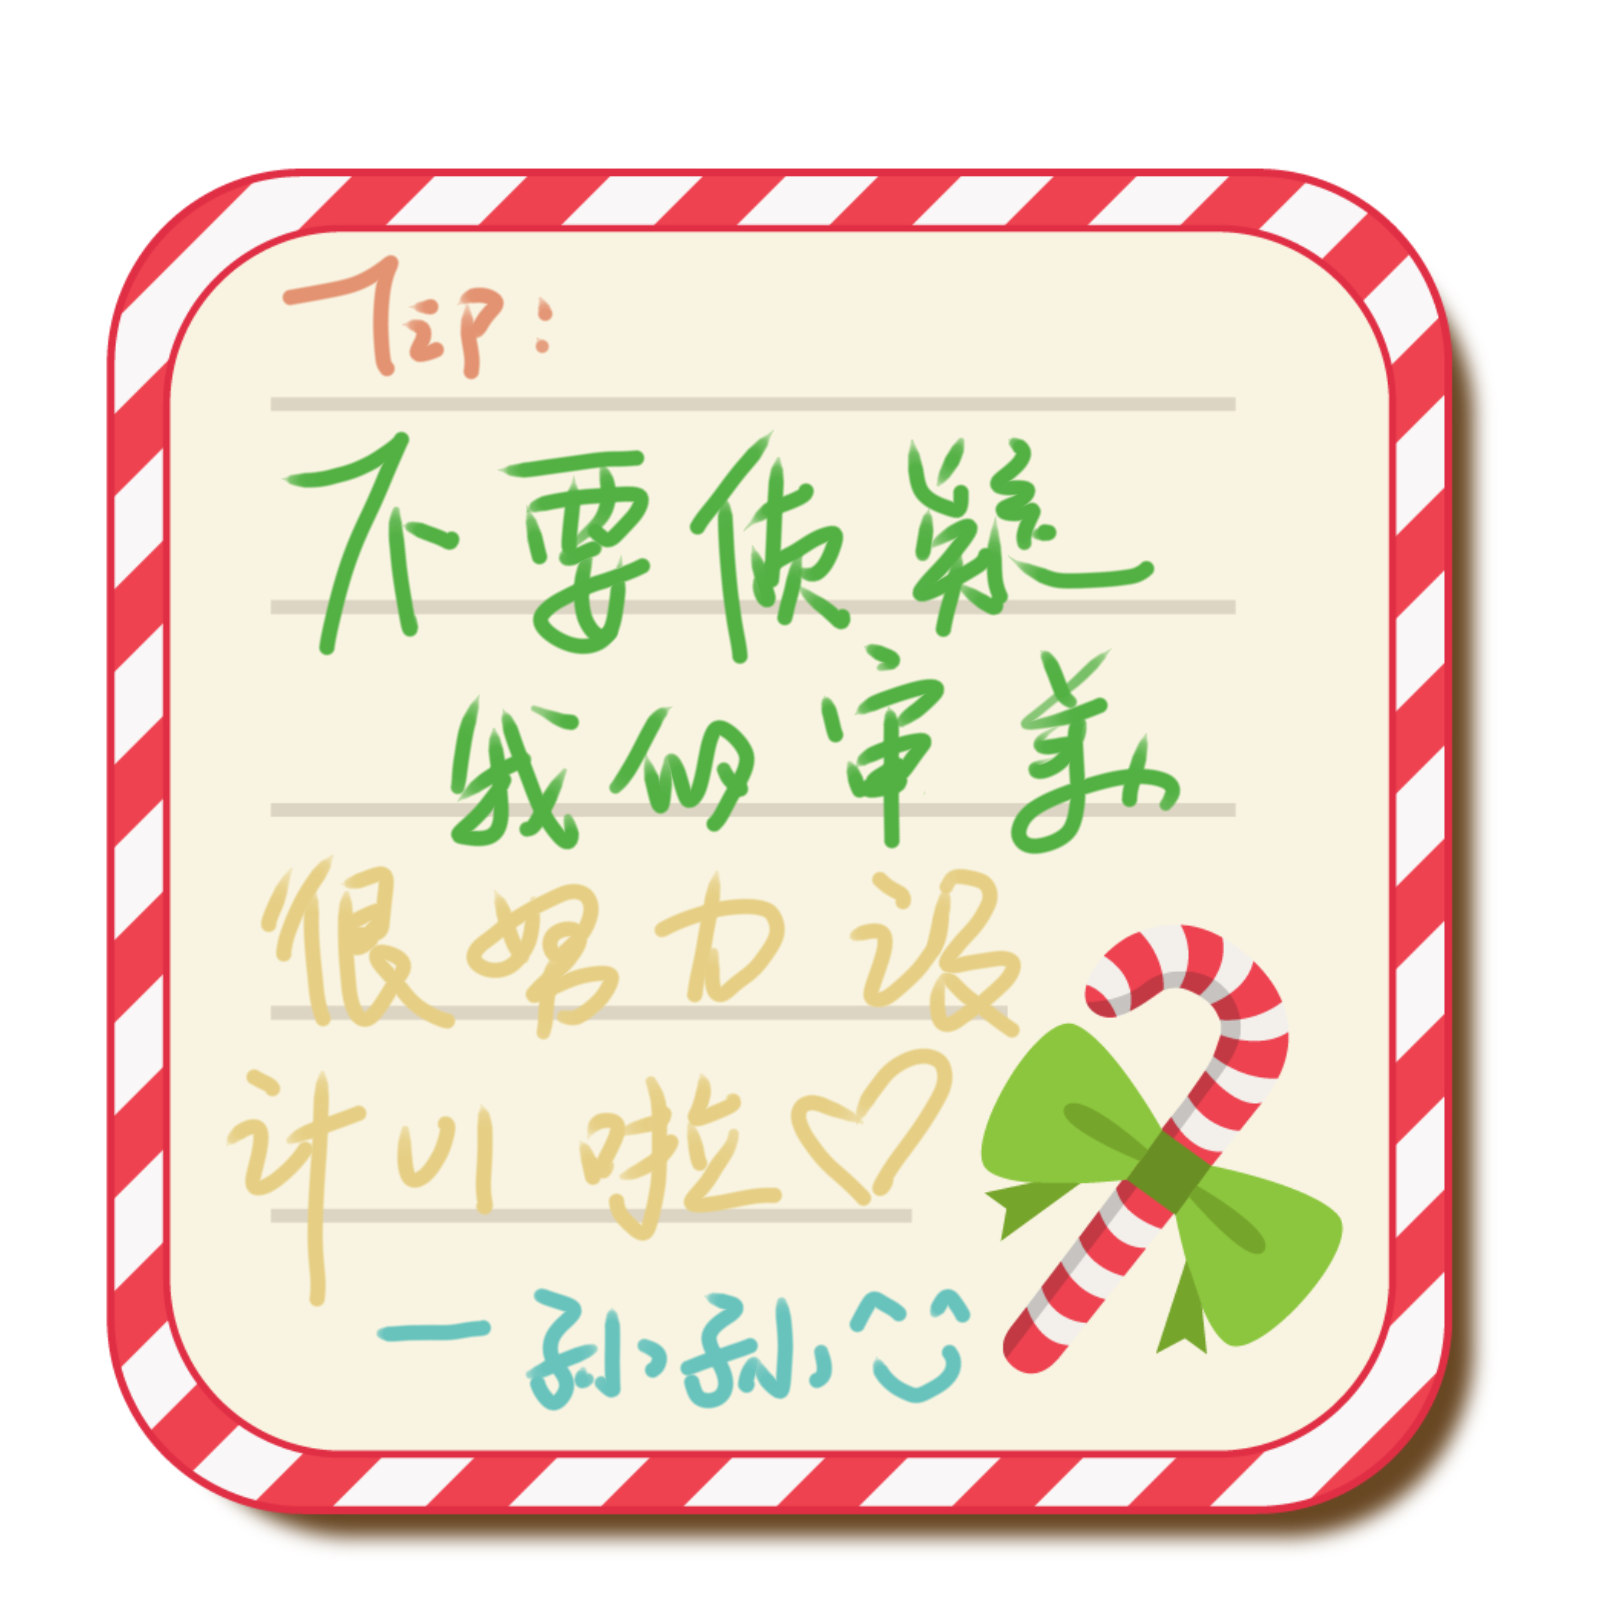 Tip:
不要质疑
我的审美
很努力设
计UI啦♡
—孙孙